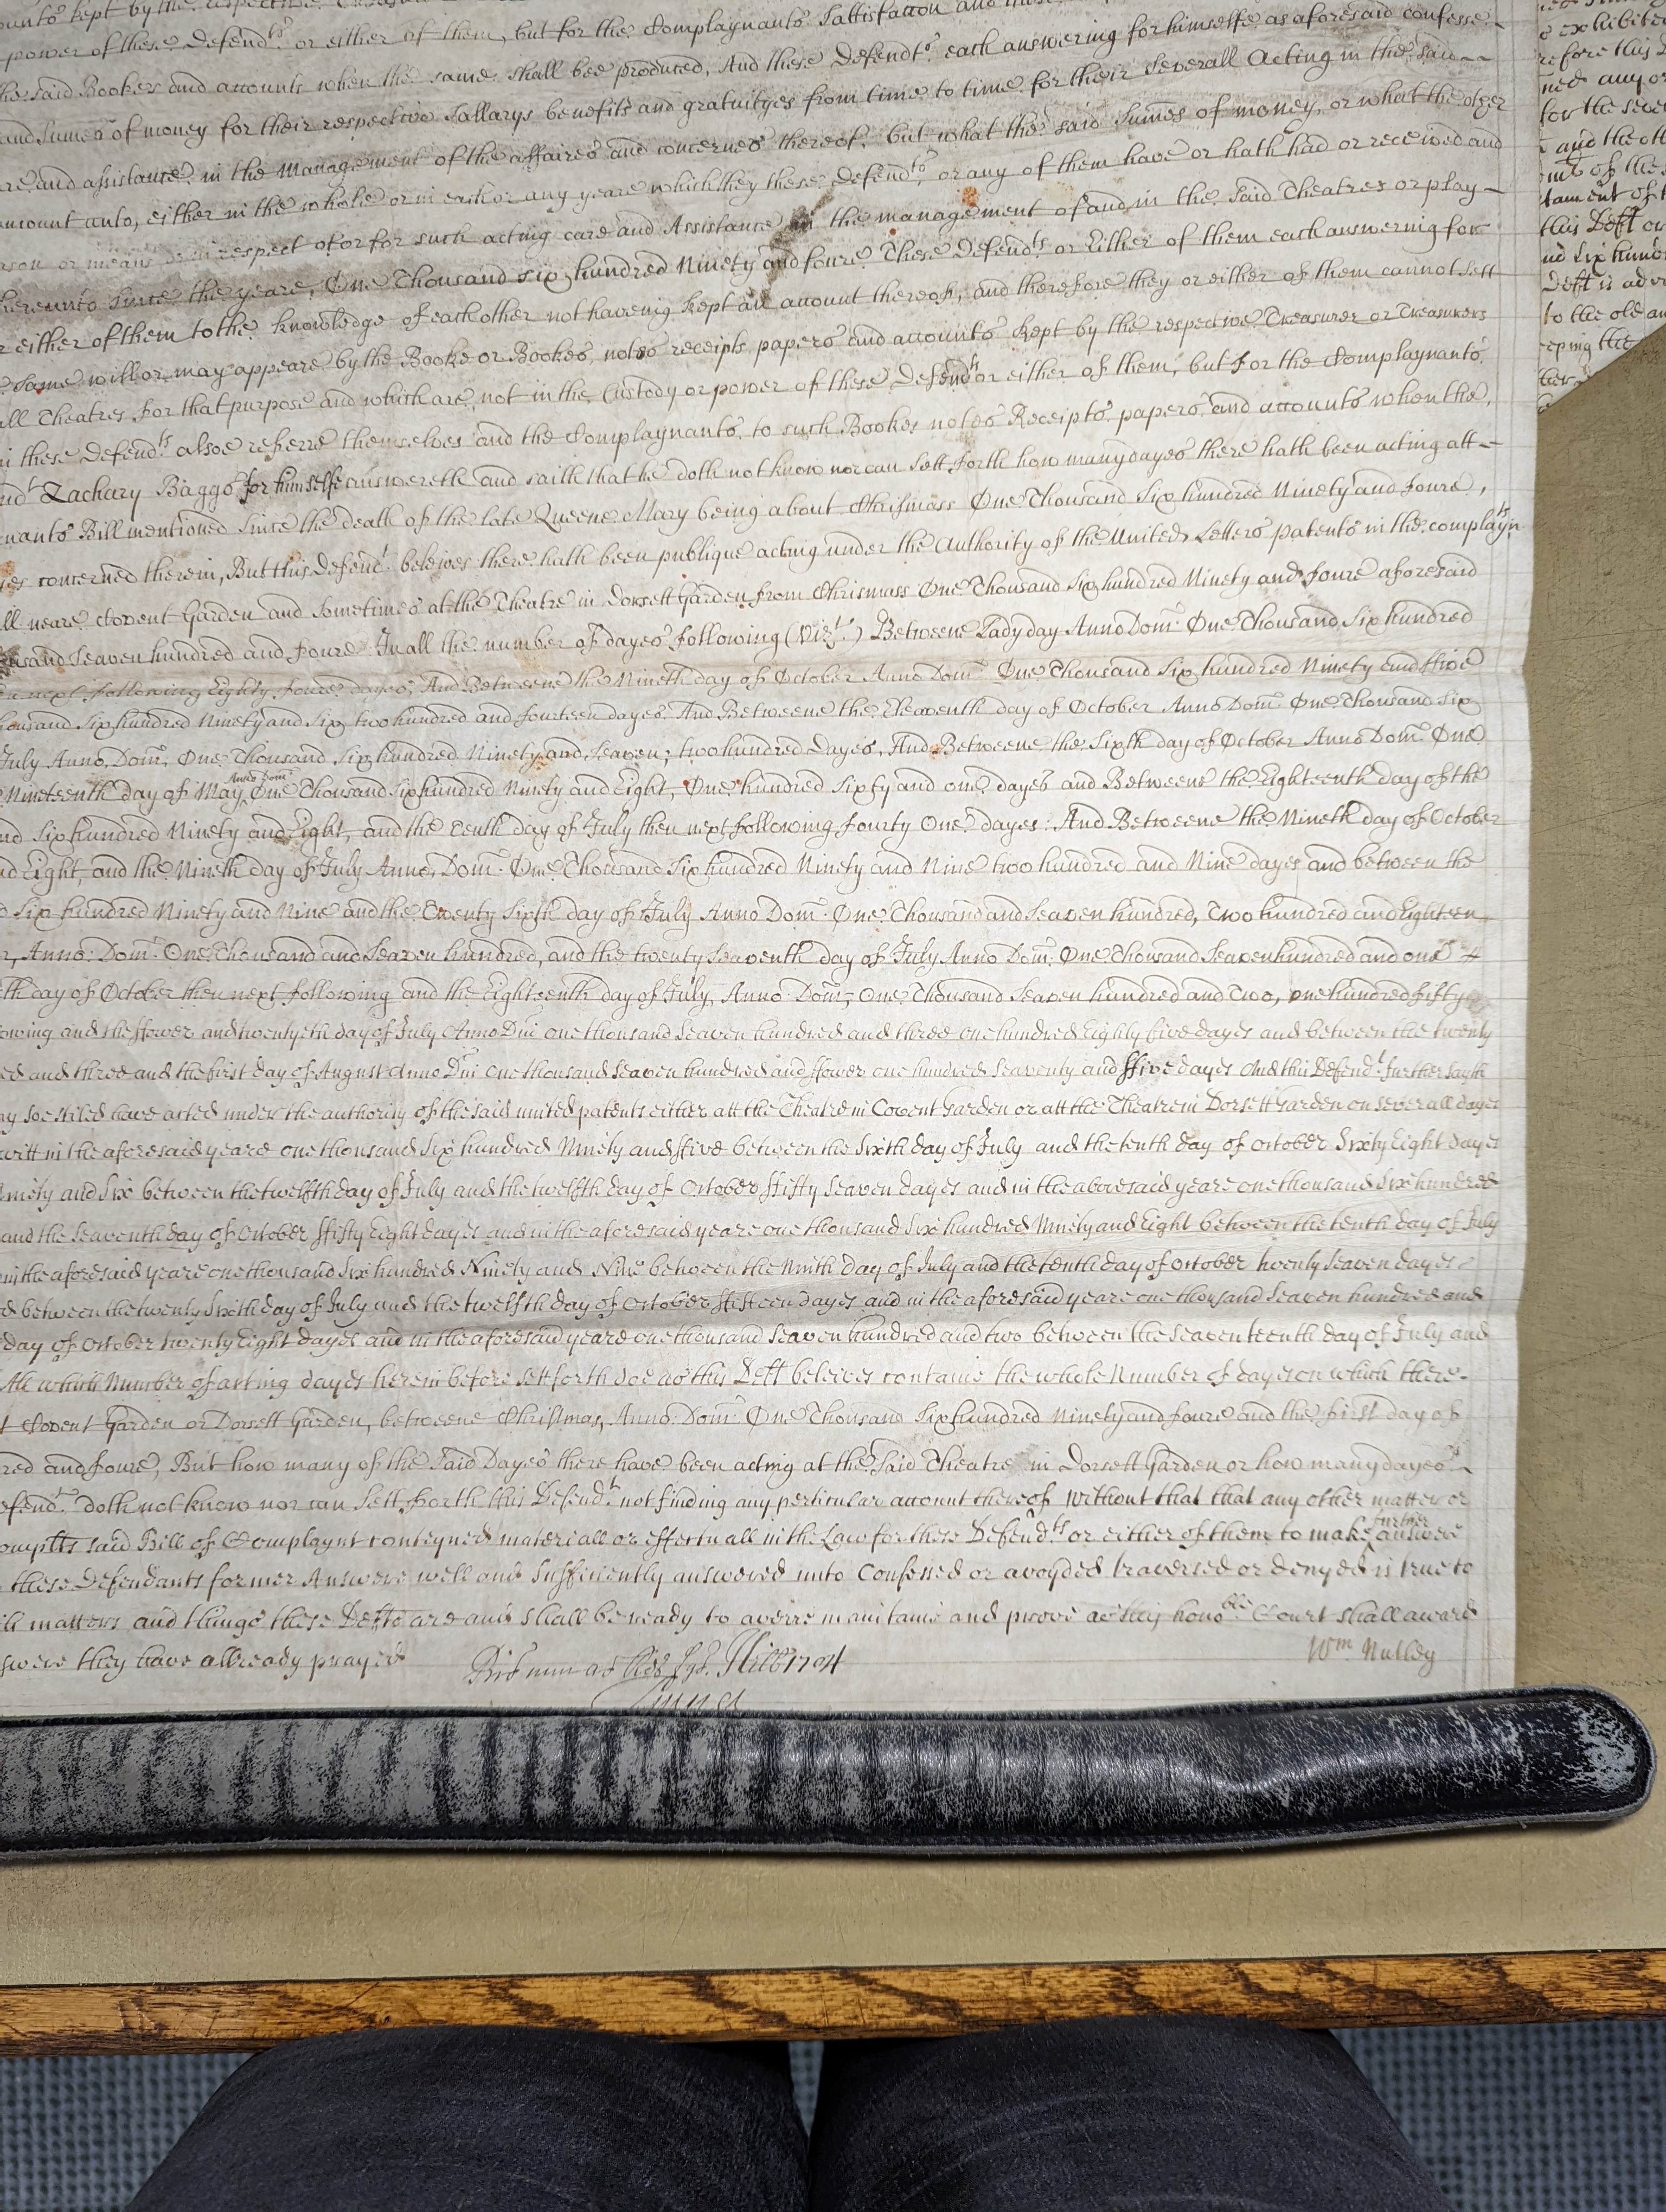 ounts kept by the respective
power of these Defendts. or either of them, but for the Complaynants Sattisfaccon and
he said Bookes and accounts when the same shall bee produced, And these Defendts. each answering for himselfe as aforesaid confesse
and Sumes of money for their respective Sallarys benefits and gratuityes from time to time for their severall Acting in the said
are and assistance in the Management of the affaires and concernes thereof. but what the said Sumes of money, or what the
amount unto, either in the whole or in each or any yeare which they these Defendts. or any of them have or hath had or received and
ason or means or in respect of or for such acting care and Assistance in the management of and in the said Theatres or play-
hereunto since the yeare, One Thousand six hundred Ninety and foure These Defendts or Either of them each answering for
r either of them to the knowledge of each other not haveing kept an account thereof, and therefore they or either of them cannot sett
same will or may appeare by the Booke or Bookes, notes receipts papers and accounts kept by the respective Treasurer or Treasurers
all Theatres for that purpose and which are not in the Custody or power of these Defendts or either of them, but for the Complaynants.
n these Defendts. alsoe referre themselves and the Complaynants. to such Bookes notes Receipts, papers, and accounts when the,
ndt Zachary Baggs for himselfe answereth and saith that he doth not know nor can sett forth how many dayes there hath been acting att-
nants Bill mentioned since the death of the late Queene Mary being about Chrismass One Thousand Six hundred Ninety and foure,
ies concerned therein, But this Defendt. beleives there hath been publique acting under the Authority of the United Letters patents in the complaynts
ll neare Covent Garden and sometimes at the Theatre in Dorsett Garden from Chrismass One Thousand Six hundred Ninety and foure aforesaid
ousand Seaven hundred and foure In all the number of dayes following (Vizt.) Betweene Ladyday Anno Dom. One Thousand Six hundred
n next following Eighty foure dayes, And Betweene the Nineth day of October Anno Dom. One Thousand Six hundred Ninety and ffive
housand Six hundred Ninety and Six, two hundred and fourteen dayes. And Betweene the Eleaventh day of October Anno Dom. One Thousand Six
July Anno. Dom, One Thousand Six hundred Ninety and Seaven, two hundred Dayes, And Betweene the Sixth day of October Anno Dom. One
Nineteenth day of May Anno Dom. One Thousand Six hundred Ninety and Eight, One hundred Sixty and one dayes and Betweene the Eighteenth day of the
nd Six hundred Ninety and Eight, and the Tenth day of July then next following fourty One dayes: And Betweene the Nineth day of October
nd Eight, and the Nineth day of July Anno. Dom. One Thousand Six hundred Ninety and Nine two hundred and Nine dayes and between the
d Six hundred Ninety and Nine and the Twenty Sixth day of July Anno Dom. One Thousand and Seaven hundred, Two hundred and Eighteen
r, Anno: Dom. One Thousand and Seaven hundred, and the twenty Seaventh day of July Anno Dom. One Thousand Seaven hundred and one
th day of October then next following and the Eighteenth day of July, Anno Dom, One Thousand Seaven hundred and Two, one hundred fifty
owing and the ffower and twentyeth day of July Anno Dni one thousand seaven hundred and three one hundred Eighty five dayes and between the twenty
ed and three and the first day of August Anno Dni one thousand Seaven hundred and ffower one hundred Seaventy and ffive dayes And this Defendt. further sayth
ny soe stiled have acted under the authority of the said united patents either att the Theatre in Covent Garden or att the Theatre in Dorsett Garden on severall dayes
witt in the aforesaid yeare one thousand Six hundred Ninety and ffive between the Sixth day of July and the tenth day of October Sixty Eight dayes
Ninety and Six between the twelfth day of July and the twelfth day of October ffifty Seaven dayes and in the abovesaid yeare one thousand Six hundred
and the Seaventh day of October ffifty Eight dayes and in the aforesaid yeare one thousand Six hundred Ninety and Eight between the tenth day of July
in the aforesaid yeare one thousand Six hundred Ninety and Nine between the Ninth day of July and the tenth day of October twenty Seaven dayes
d between the twenty Sixth day of July and the twelfth day of October ffifteen dayes and in the aforesaid yeare one thousand Seaven hundred and
day of October twenty Eight dayes and in the aforesaid yeare one thousand Seaven hundred and two between the Seaventeenth day of July and
All which Number of acting dayes herein before sett forth doe as this Deft beleives containe the whole Number of dayes on which there-
t Covent Garden or Dorsett Garden, betweene Christmas, Anno. Dom. One Thousand Six hundred Ninety and foure and the first day of
red and foure, But how many of the said Dayes there have been acting at the said Theatre in Dorsett Garden or how many dayes
efendt. doth not know nor can sett forth this Defendt. not finding any perticular account thereof Without that that any other matter or
omplts said Bill of Complaynt conteyned materiall or effectuall in the Law for these Defendts. or either of them to make further answere
these Defendants former Answere well and sufficiently answered unto Confessed or avoyded traversed or denyed is true to
ch matters and things these Defts are and shall be ready to averre maintaine and prove as this honoble Court shall award
swere they have allready prayed
Wm Nutley
exhibited
refore this
ned any
for the seve
and the oth
of the
tament of
this Deft
nd Six hund
Deft is
to the old
eping the